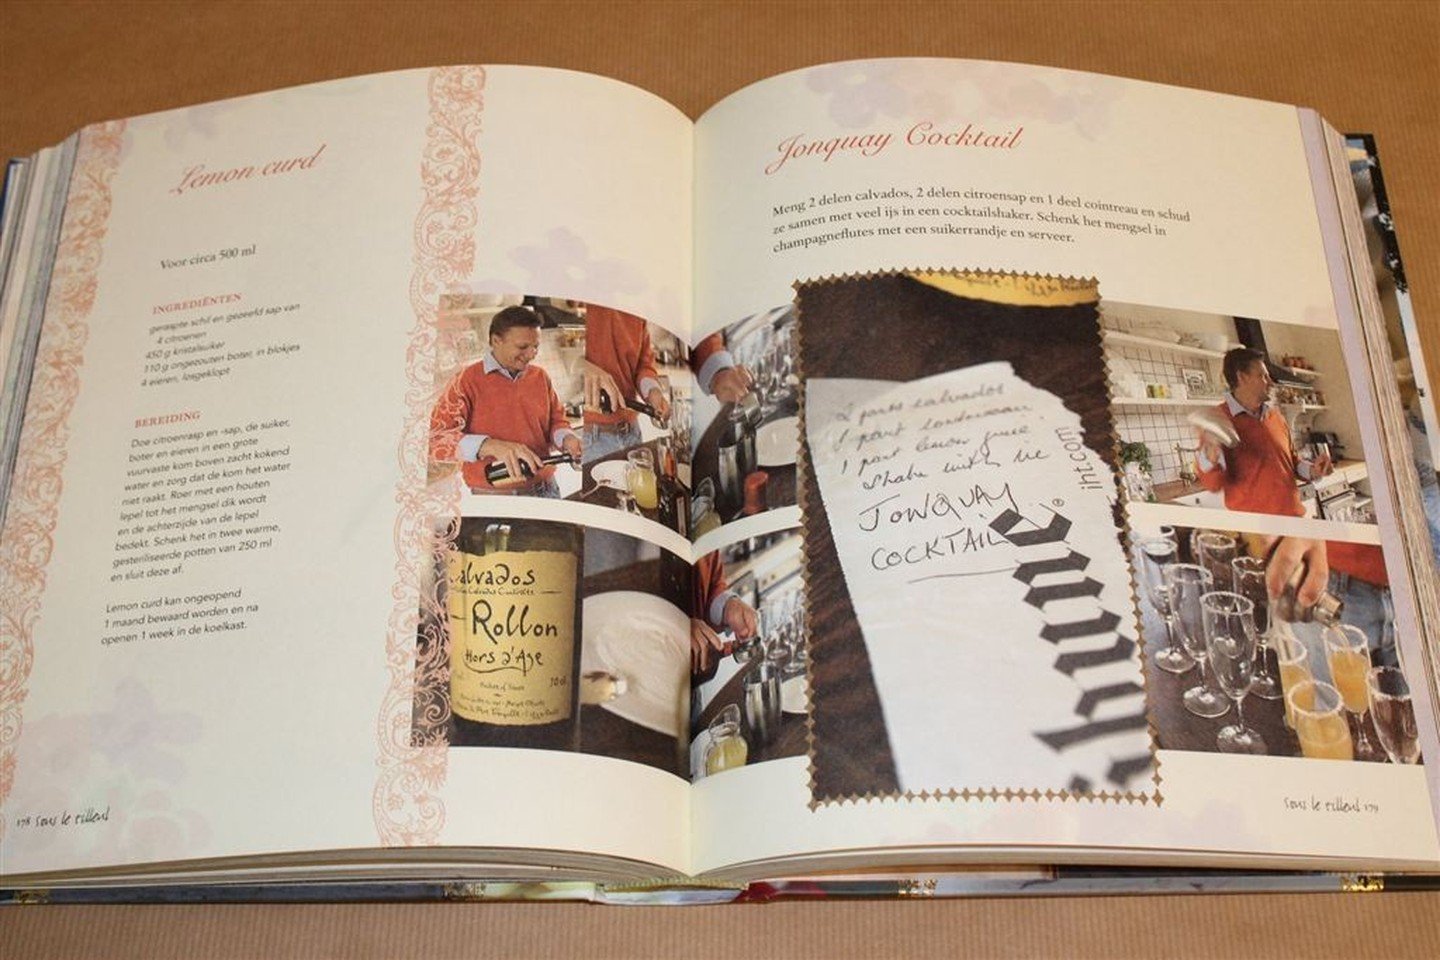 Lemon curd
Voor circa 500 ml
INGREDIËNTEN
geraspte schil en gezeefd sap van
4 citroenen
450 g kristalsuiker
110 g ongezouten boter, in blokjes
4 eieren, losgeklopt
BEREIDING
Doe citroenrasp en -sap, de suiker,
boter en eieren in een grote
vuurvaste kom boven zacht kokend
water en zorg dat de kom het water
niet raakt. Roer met een houten
lepel tot het mengsel dik wordt
en de achterzijde van de lepel
bedekt. Schenk het in twee warme,
gesteriliseerde potten van 250 ml
en sluit deze af.
Lemon curd kan ongeopend
1 maand bewaard worden en na
openen 1 week in de koelkast.
178 sous le tilleul
Calvados
Rollon
Hors d'Age
70 cl
Jonquay Cocktail
Meng 2 delen calvados, 2 delen citroensap en 1 deel cointreau en schud
ze samen met veel ijs in een cocktailshaker. Schenk het mengsel in
champagneflutes met een suikerrandje en serveer.
2 parts calvados
1 part
1 part lemon juice
shake with ice
JONQUAY
COCKTAIL
iht.com
sous le tilleul 179